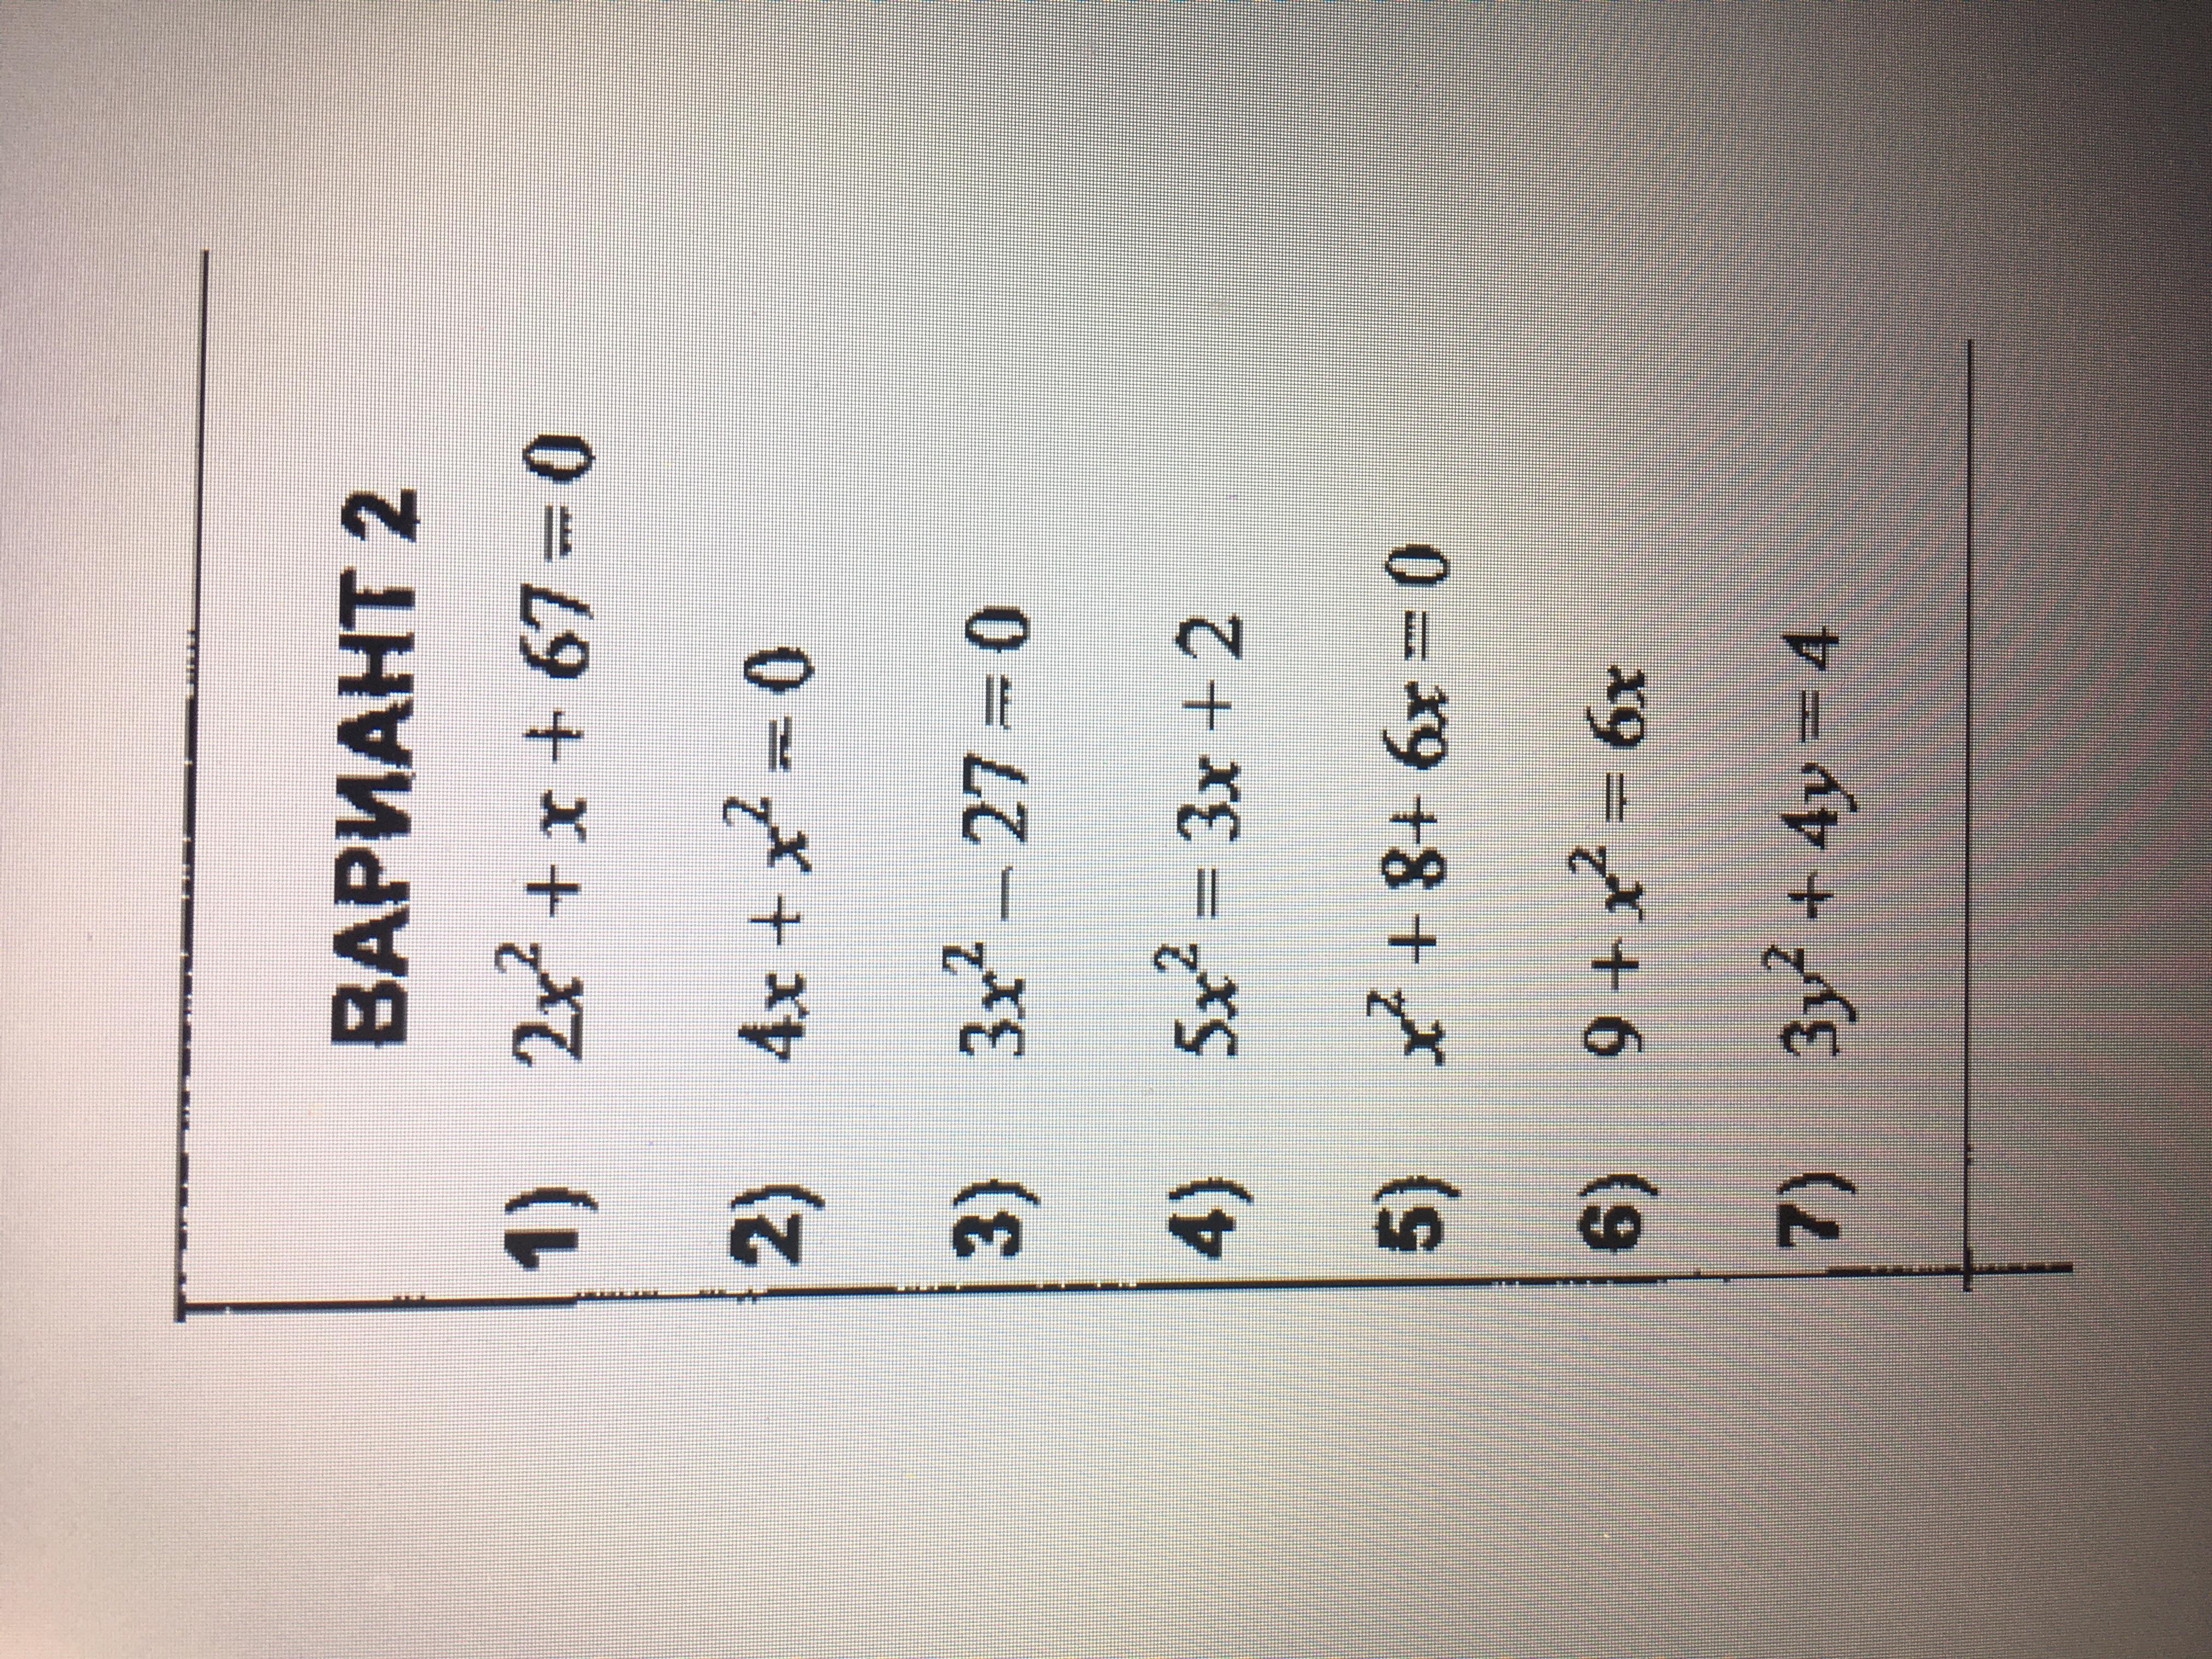 ВАРИАНТ 2
1) 2x² + x + 67 = 0
2) 4x + x² = 0
3) 3x² − 27 = 0
4) 5x² = 3x + 2
5) x² + 8 + 6x = 0
6) 9 + x² = 6x
7) 3y² + 4y = 4